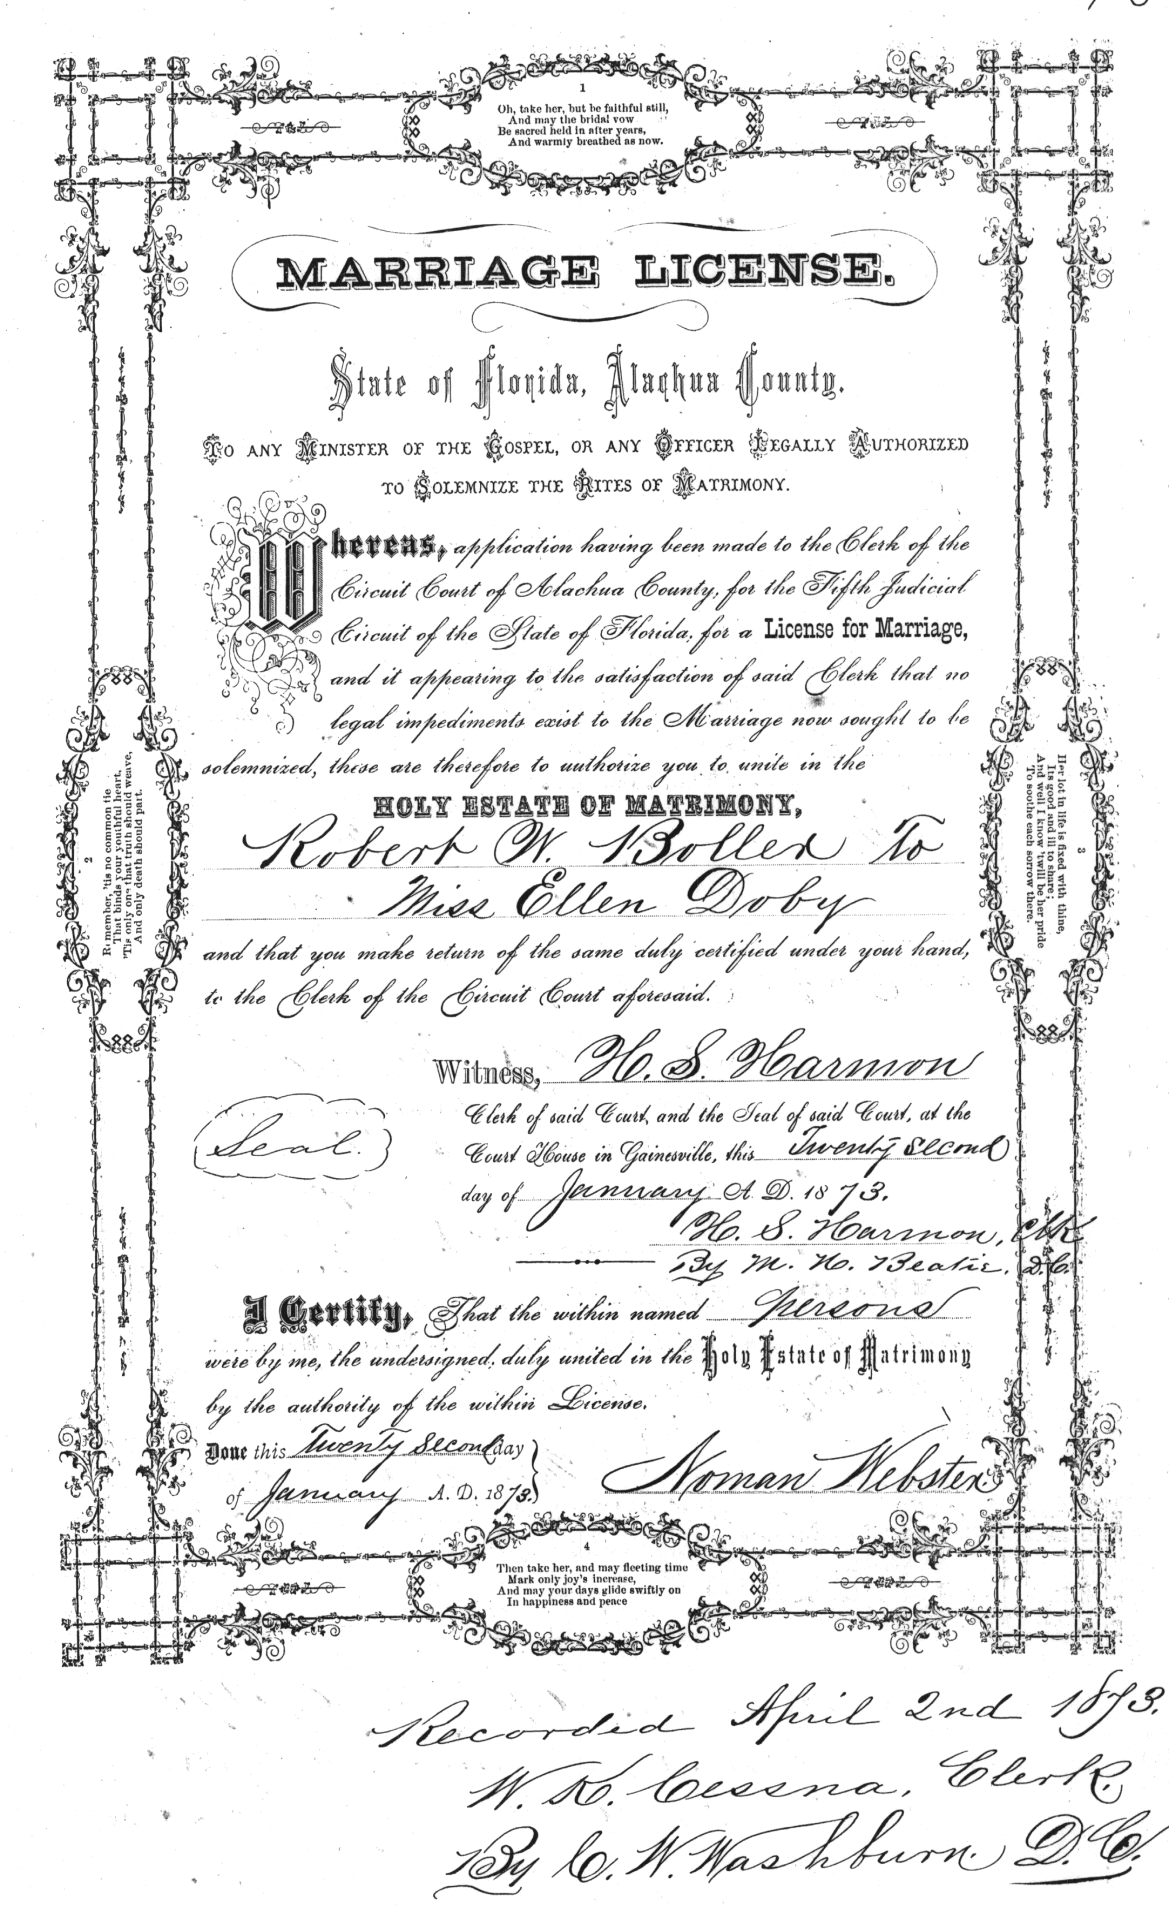 1
Oh, take her, but be faithful still,
And may the bridal vow
Be sacred held in after years,
And warmly breathed as now.
MARRIAGE LICENSE.
State of Florida, Alachua County.
TO ANY MINISTER OF THE GOSPEL, OR ANY OFFICER LEGALLY AUTHORIZED
TO SOLEMNIZE THE RITES OF MATRIMONY.
Whereas, application having been made to the Clerk of the
Circuit Court of Alachua County, for the Fifth Judicial
Circuit of the State of Florida, for a License for Marriage,
and it appearing to the satisfaction of said Clerk that no
legal impediments exist to the Marriage now sought to be
solemnized, these are therefore to authorize you to unite in the
HOLY ESTATE OF MATRIMONY,
Robert W. Boller To
Miss Ellen Doby
and that you make return of the same duly certified under your hand,
to the Clerk of the Circuit Court aforesaid.
2
Remember, 'tis no common tie
That binds your youthful heart,
'Tis only one that truth should weave,
And only death should part.
3
Her lot in life is fixed with thine,
Its good and ill to share;
And well I know 'twill be her pride
To soothe each sorrow there.
Witness, H. S. Harmon
Seal.
Clerk of said Court, and the Seal of said Court, at the
Court House in Gainesville, this Twenty Second
day of January A. D. 1873.
H. S. Harmon, Clk
By M. H. Beatie, D.C.
I Certify, That the within named persons
were by me, the undersigned, duly united in the Holy Estate of Matrimony
by the authority of the within License.
Done this Twenty Second day
of January A. D. 1873.
Noman Webster
4
Then take her, and may fleeting time
Mark only joy's increase,
And may your days glide swiftly on
In happiness and peace
Recorded April 2nd 1873.
W. K. Cessna, Clerk.
By C. W. Washburn D.C.